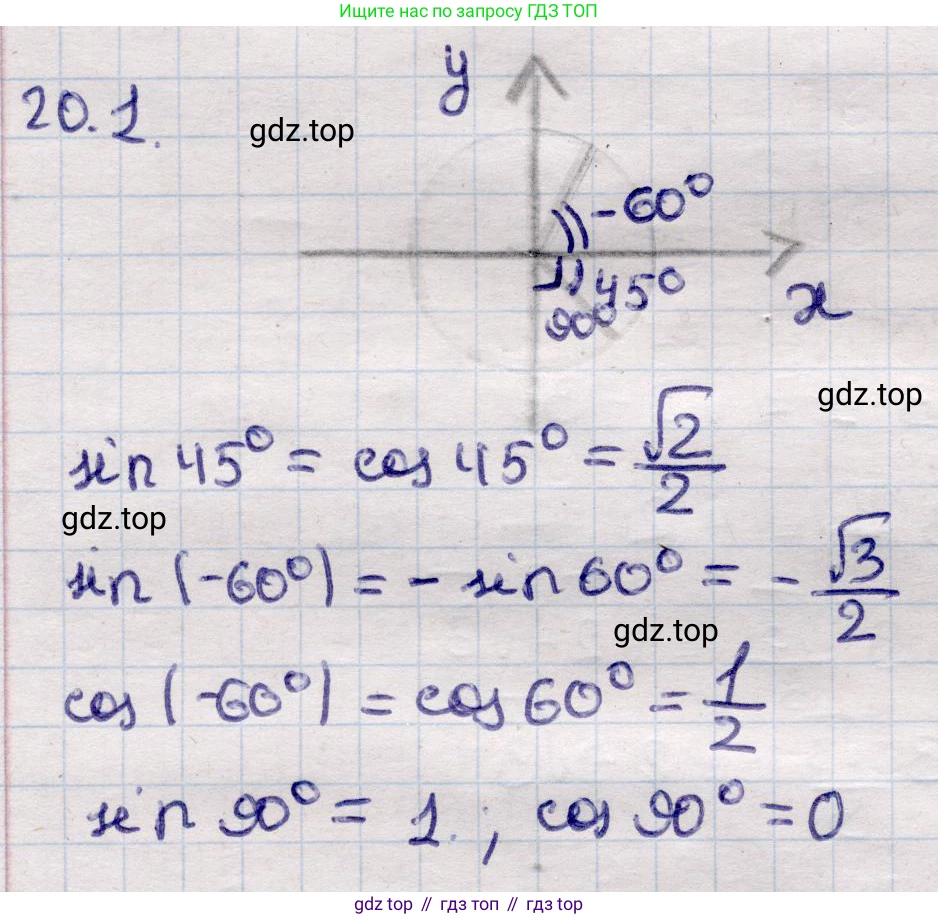 Ищите нас по запросу ГДЗ ТОП
y
20.1.
gdz.top
-60°
45°
90°
x
gdz.top
sin 45° = cos 45° = √2/2
gdz.top
sin (-60°) = - sin 60° = - √3/2
gdz.top
cos (-60°) = cos 60° = 1/2
sin 90° = 1. ; cos 90° = 0
gdz top // гдз топ // gdz top